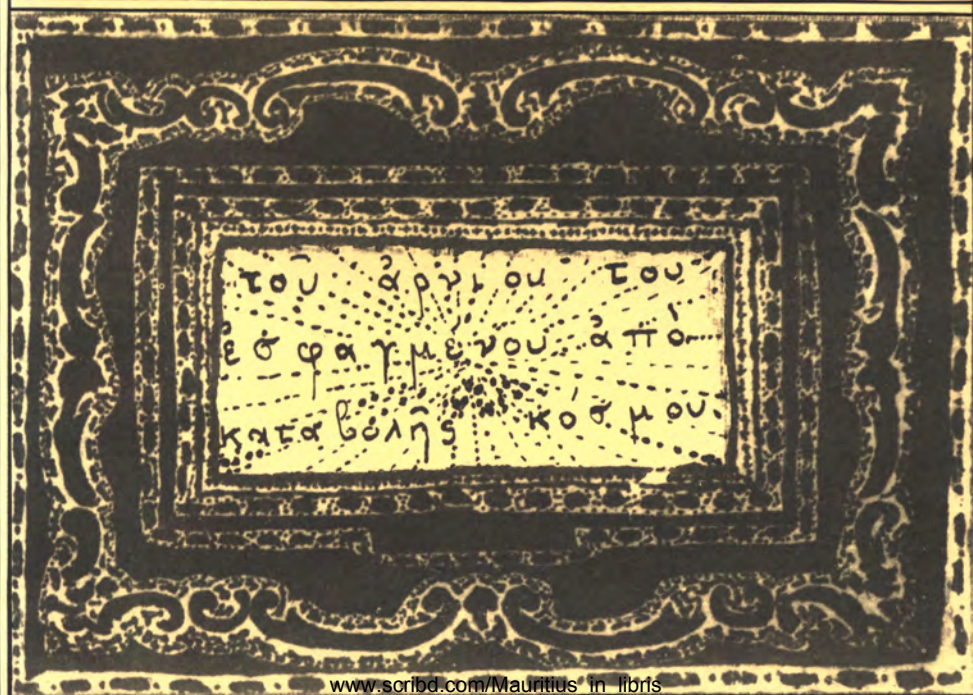 τοῦ ἀρνίου του
ἐσφαγμένου ἀπό
καταβολῆς κόσμου.
www.scribd.com/Mauritius_in_libris